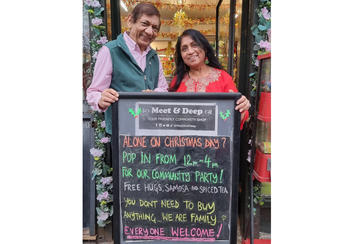 Meet & Deep
YOUR FRIENDLY COMMUNITY SHOP
ALONE ON CHRISTMAS DAY?
POP IN FROM 12PM-4PM
FOR OUR COMMUNITY PARTY!
FREE HUGS, SAMOSA & SPICED TEA
YOU DON'T NEED TO BUY
ANYTHING... WE ARE FAMILY?
EVERYONE WELCOME!